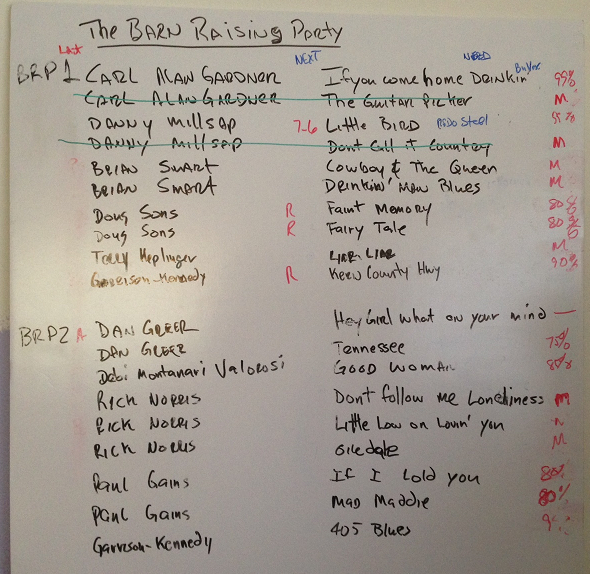 The BARN Raising Party
Last NEXT NEED Buyline
BRP1 CARL ALAN GARDNER If you come home DRINKin' 99%
CARL ALAN GARDNER The Guitar Picker M
DANNY Millsap 7-6 Little BIRD Redo Steel
DANNY Millsap Dont Call it Country M
BRIAN SMART Cowboy & The Queen M
BRIAN SMART Drinkin' Man Blues M
Doug Sons R Faint Memory 80%
Doug Sons R Fairy Tale 80%
Terry Heplinger LIAR LIAR M
Garrison-Kennedy R Kern County Hwy 90%
Hey Girl what on your mind —
BRP2 DAN GREER
DAN GREER Tennessee 75%
Debi Montanari Valorosi GOOD WOMAN 80%
RICK NORRIS Dont follow me Loneliness M
RICK NORRIS Little Low on Lovin' you M
RICK NORRIS M
Paul Gains If I Told you 80%
Paul Gains Mad Maddie 80%
Garrison-Kennedy 405 Blues